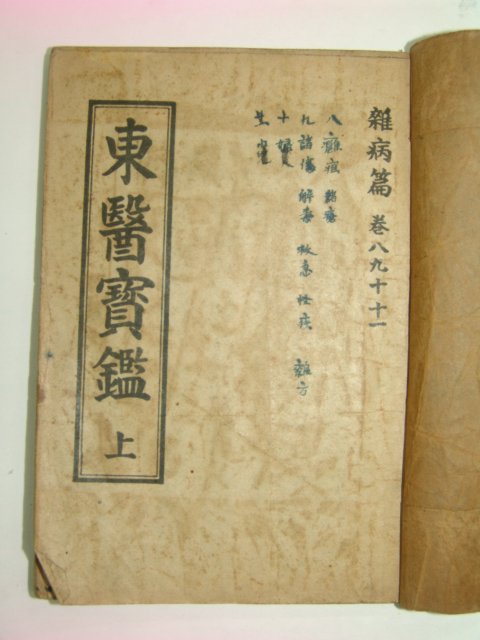 雜病篇 卷八九十十一
八 癰疽 諸瘡
九 諸傷 解毒 救急 怪疾 雜方
十 婦人
東醫寶鑑 上